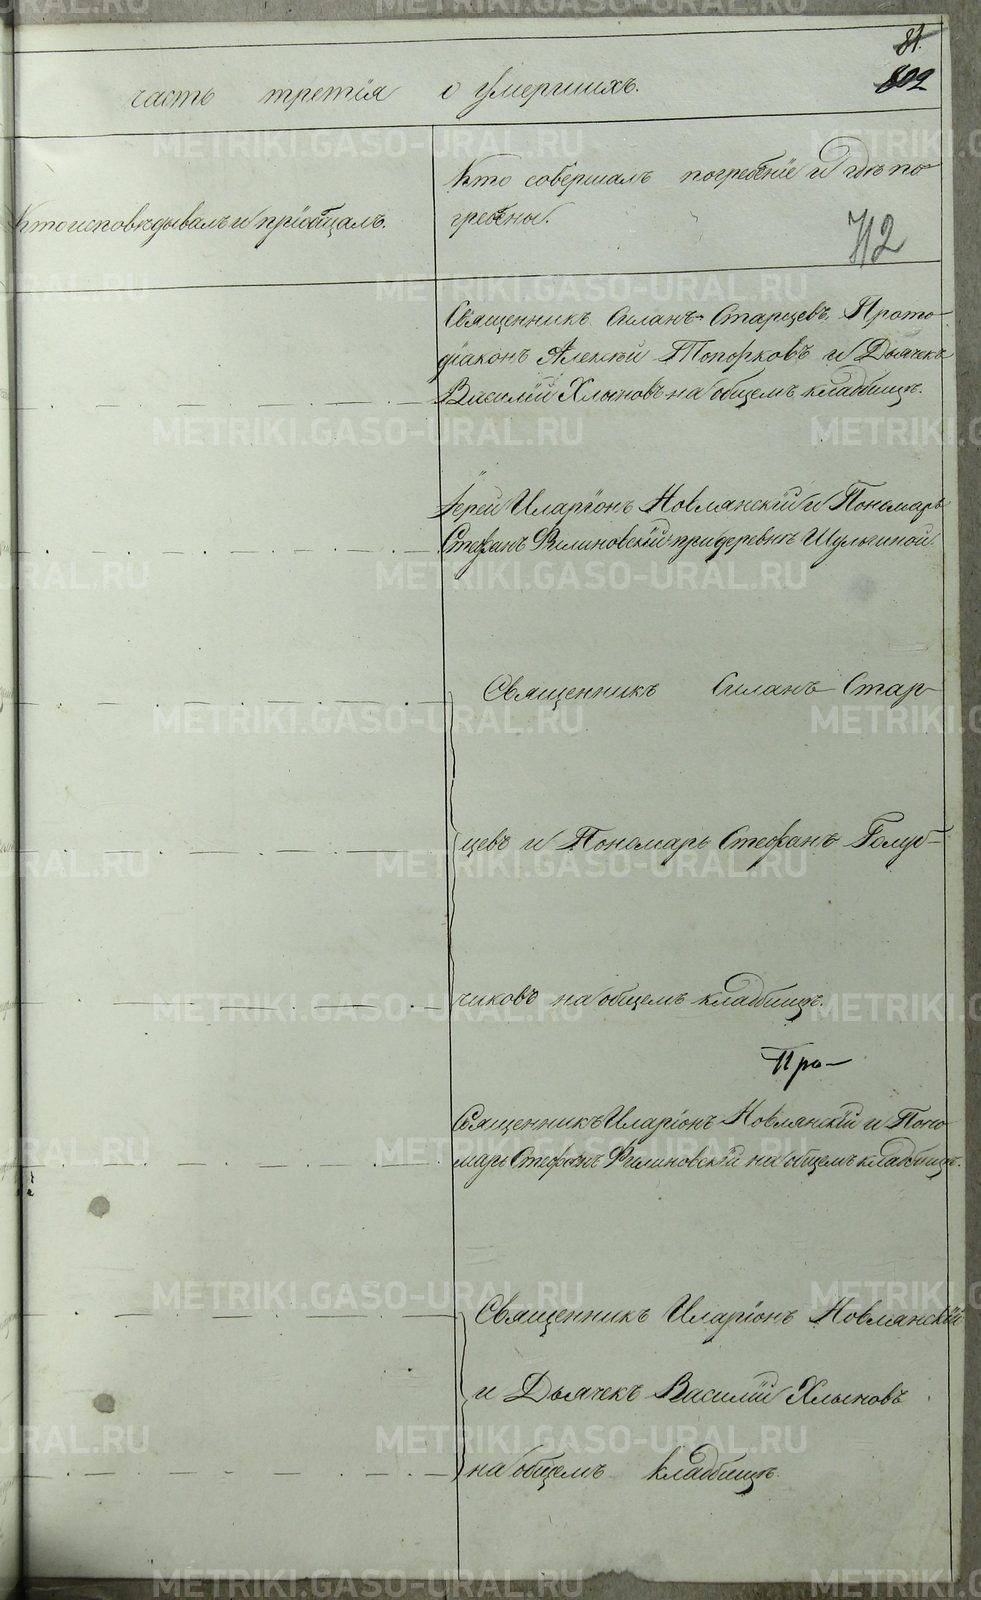 81.
802
часть третія о умершихъ.
Кто исповѣдывалъ и пріобщалъ.
Кто совершалъ погребеніе и гдѣ по-
гребены.
712
Священникъ Силанъ Старцевъ, Прото-
діаконъ Алексѣй Топорковъ и Дьячекъ
Василій Хлыновъ на общемъ кладбищѣ.
Іерей Иларіонъ Новлянскій и Пономарь
Стефанъ Филиновскій при деревнѣ Шульгиной.
Священникъ Силанъ Стар-
цевъ и Пономарь Стефанъ Голуб-
чиковъ на общемъ кладбищѣ.
Про-
Священникъ Иларіонъ Новлянскій и Поно-
марь Стефанъ Филиновскій на общемъ кладбищѣ.
Священникъ Иларіонъ Новлянскій
и Дьячекъ Василій Хлыновъ
на общемъ кладбищѣ.
METRIKI.GASO-URAL.RU